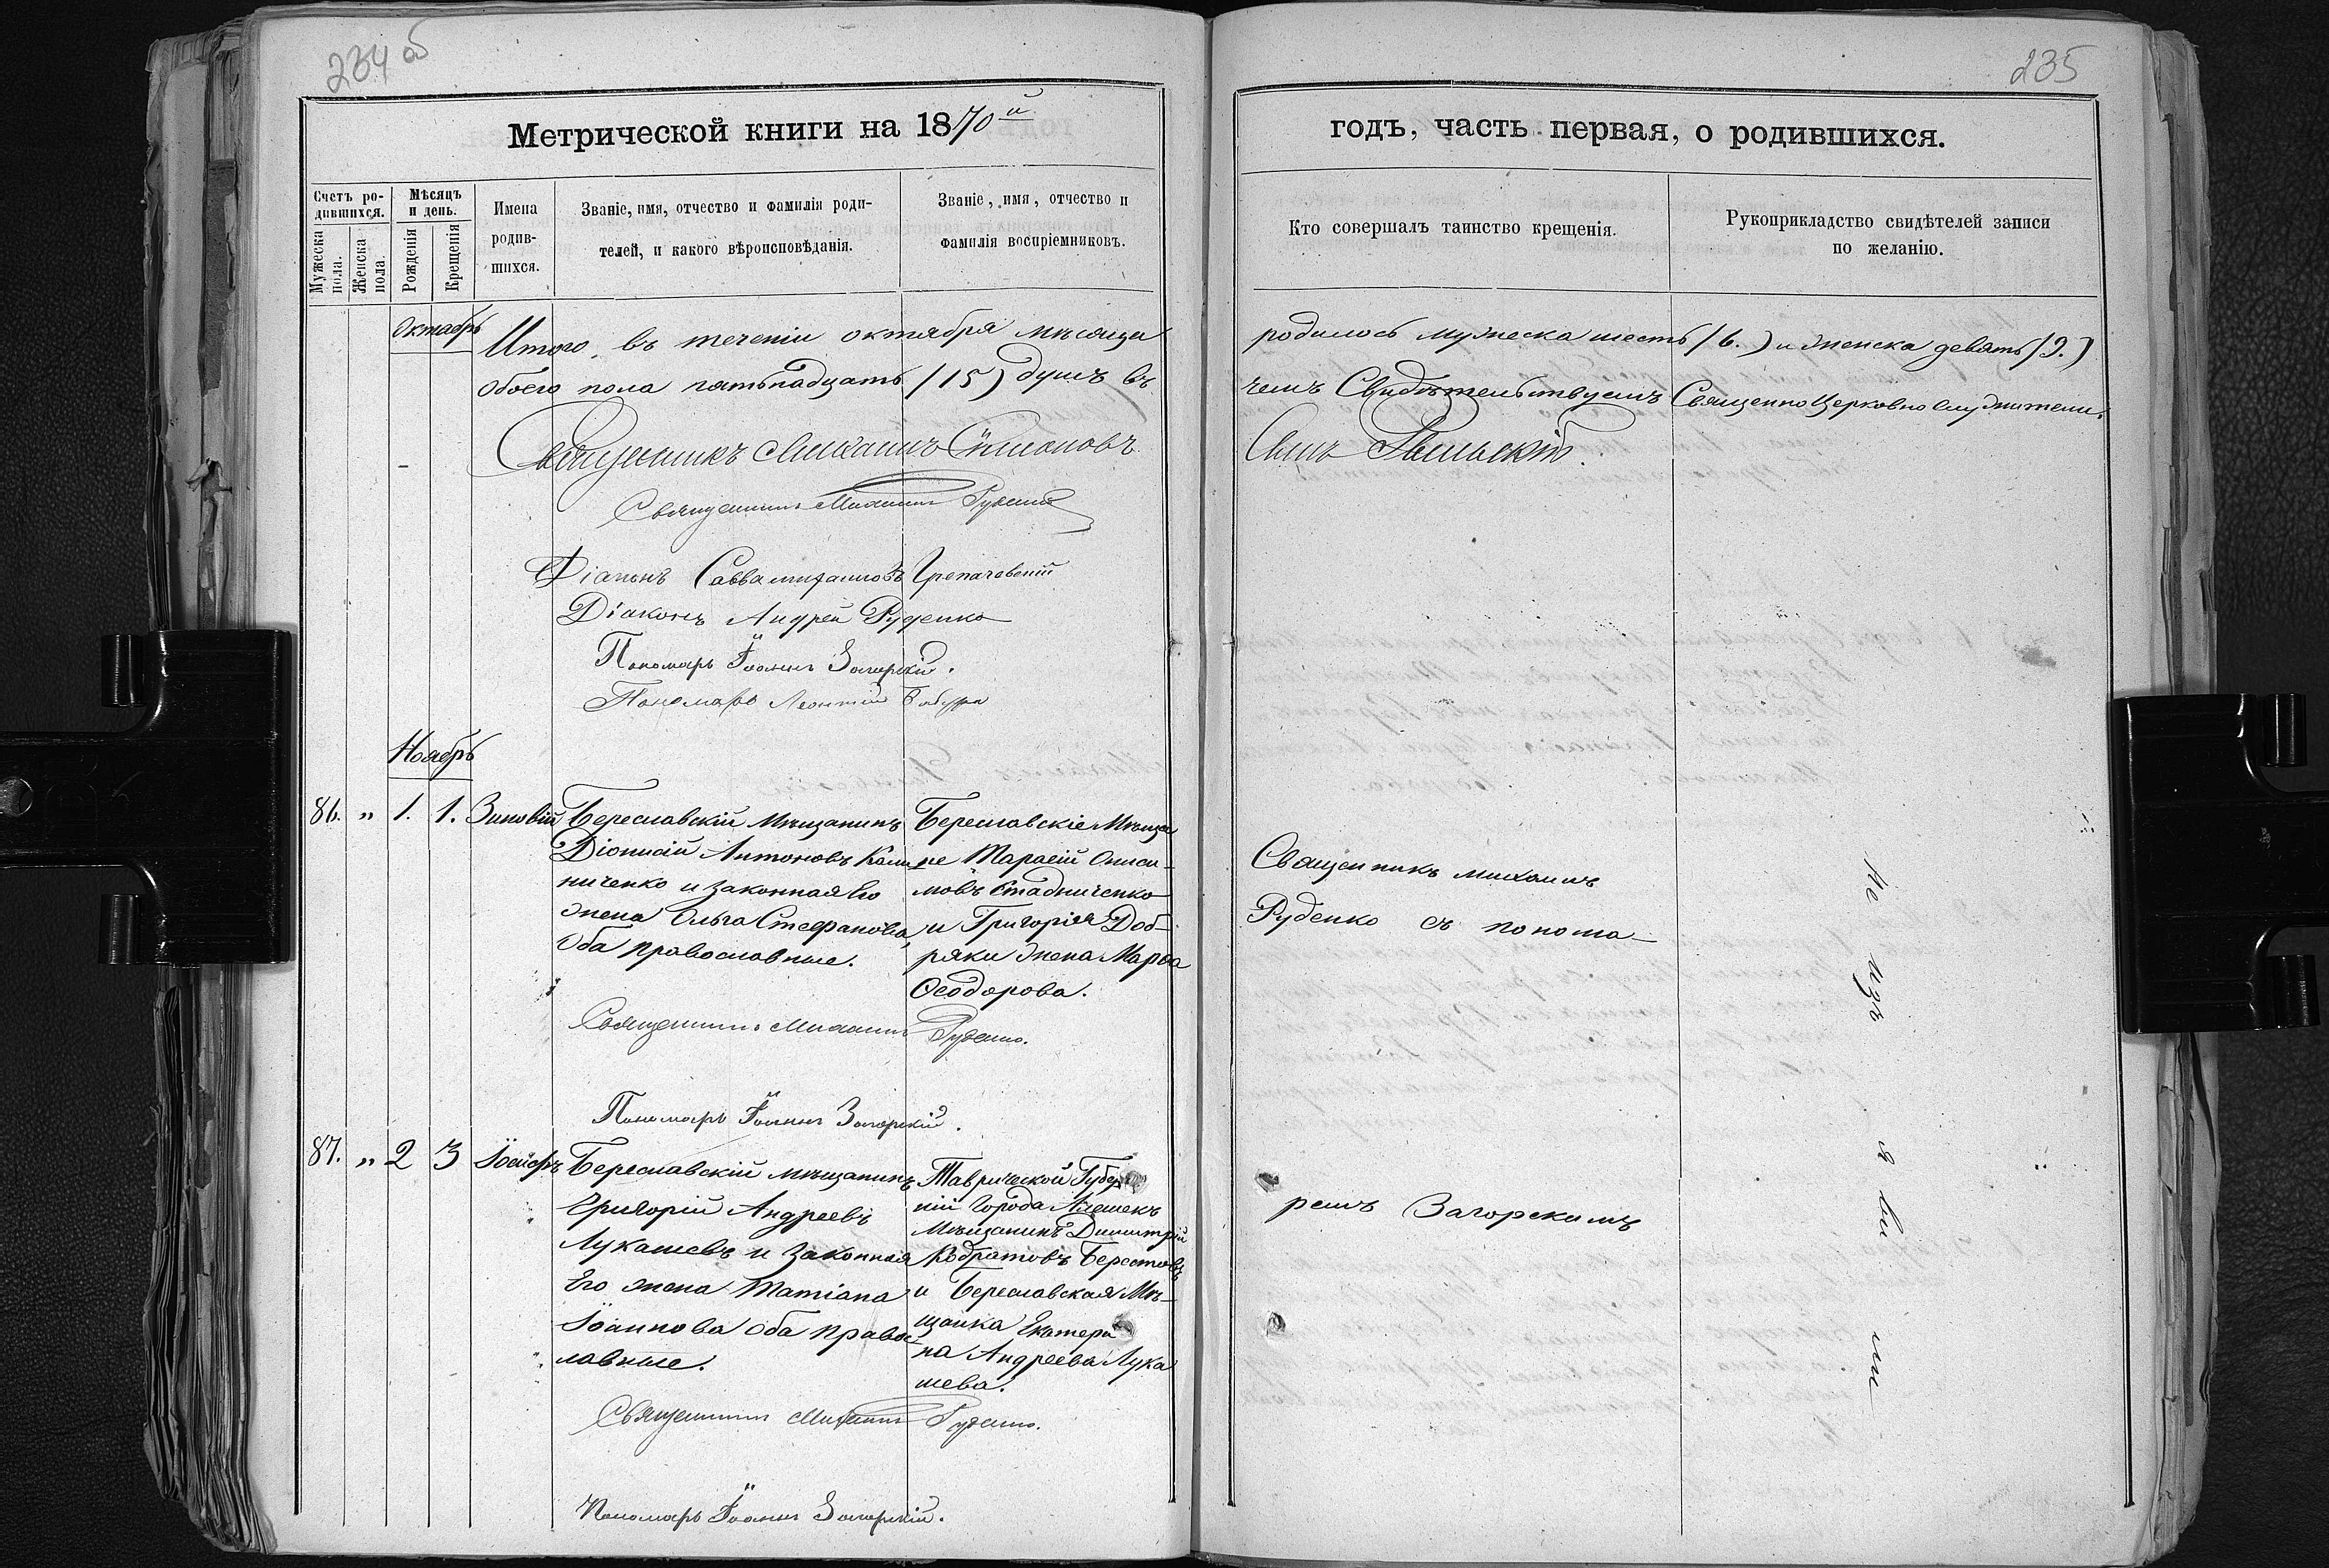 234 об
235
Метрической книги на 1870й
годъ, часть первая, о родившихся.
Счетъ ро-
дившихся.
Мужеска
пола.
Женска
пола.
Мѣсяцъ
и день.
Рожденія
Крещенія
Имена
родив-
шихся.
Званіе, имя, отчество и фамилія роди-
телей, и какого вѣроисповѣданія.
Званіе, имя, отчество и
фамилія воспріемниковъ.
Кто совершалъ таинство крещенія.
Рукоприкладство свидѣтелей записи
по желанію.
Октябрь
Итого, въ теченіи октября мѣсяца
родилось мужеска шесть (6.) и женска девять (9.)
обоего пола пятьнадцать (15) душъ въ
чемъ Свидѣтельствуемъ СвященноЦерковнослужители.
Священникъ Михаилъ
Священникъ Михаилъ Руденко
Діаконъ Савва
Діаконъ Андрей Руденко
Пономарь Іоаннъ Загорскій.
Пономарь Леонтій
Ноябрь
86. „ 1. 1. Зиновій
Береславскій мѣщанинъ
Діонисій Антоновъ Кали
ниченко и законная Его
жена Ольга Стефанова,
Оба православные.
Береславскіе Мѣща
не Тарасій Ониси-
мовъ Стадниченко
и Григорія Доб-
ряки жена Марѳа
Ѳеодорова.
Священникъ Михаилъ
Руденко съ понома-
Не изъ
Священникъ Михаилъ Руденко.
Пономарь Іоаннъ Загорскій.
87. „ 2 3 Іосифъ
Береславскій мѣщанинъ
Григорій Андреевъ
Лукашевъ и Законная
Его жена Татіана
Іоаннова Оба правос-
лавные.
Таврической Губер
ніи Города Алешекъ
Мѣщанинъ Димитрій
Кодратовъ Берестовъ
и Береславская Мѣ-
щанка Екатери
на Андреева Лука
шева.
ремъ Загорскимъ
я ви
ли
Священникъ Михаилъ Руденко.
Пономарь Іоаннъ Загорскій.